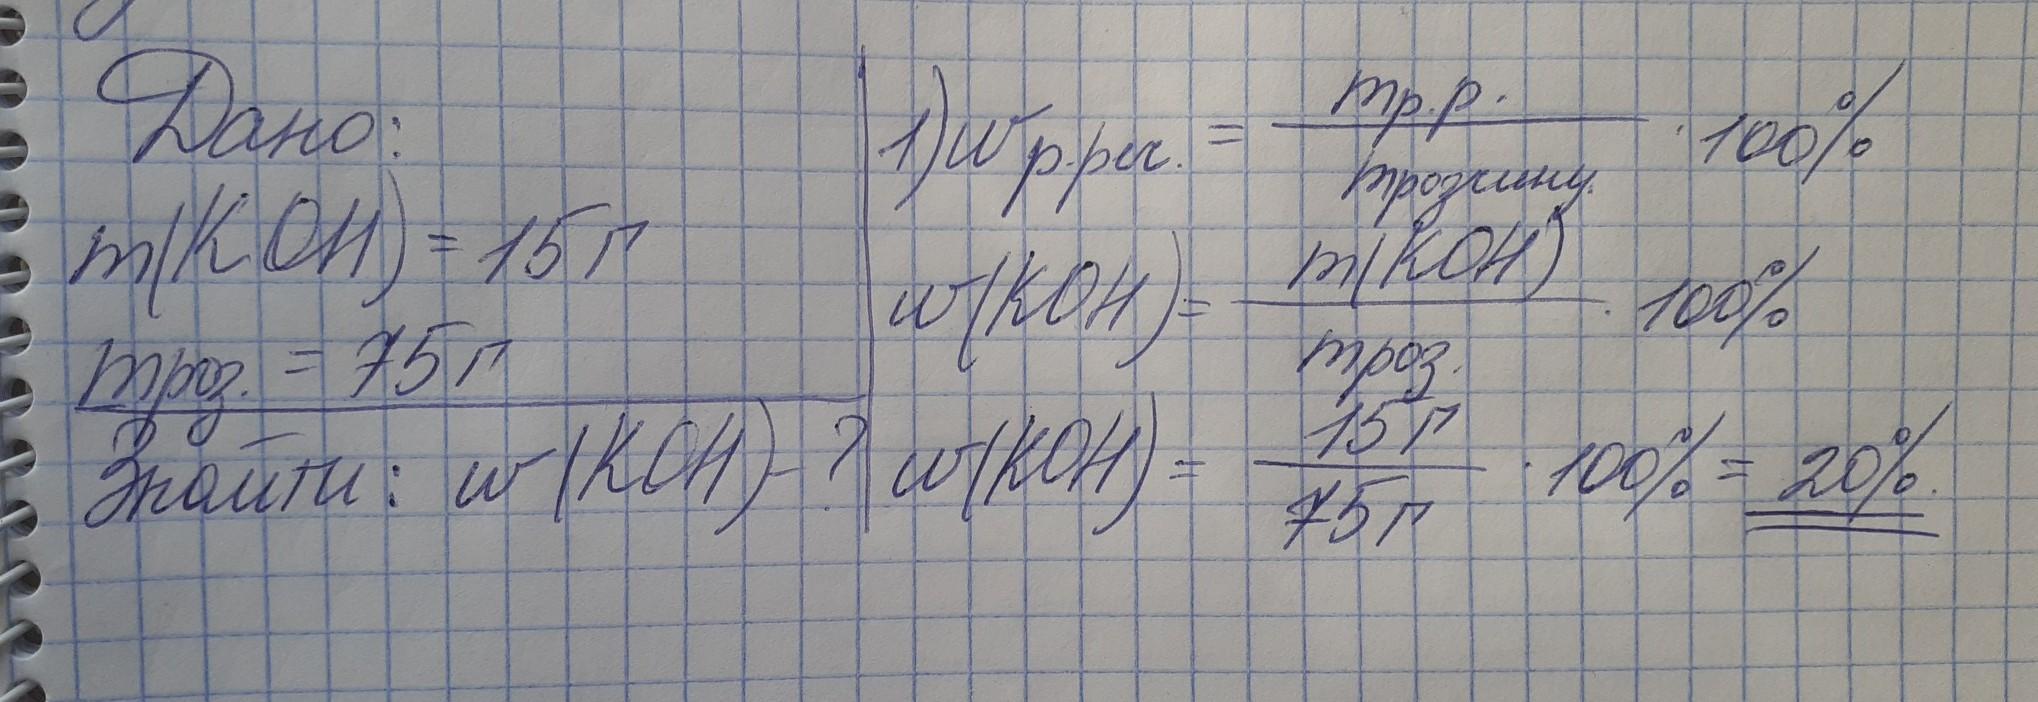 Дано:
m(KOH) = 15 г
mроз. = 75 г
Знайти: w(KOH) - ?
1) w р.реч. = mр.р. / mрозчину. · 100%
w(KOH) = m(KOH) / mроз. · 100%
w(KOH) = 15 г / 75 г · 100% = 20%.